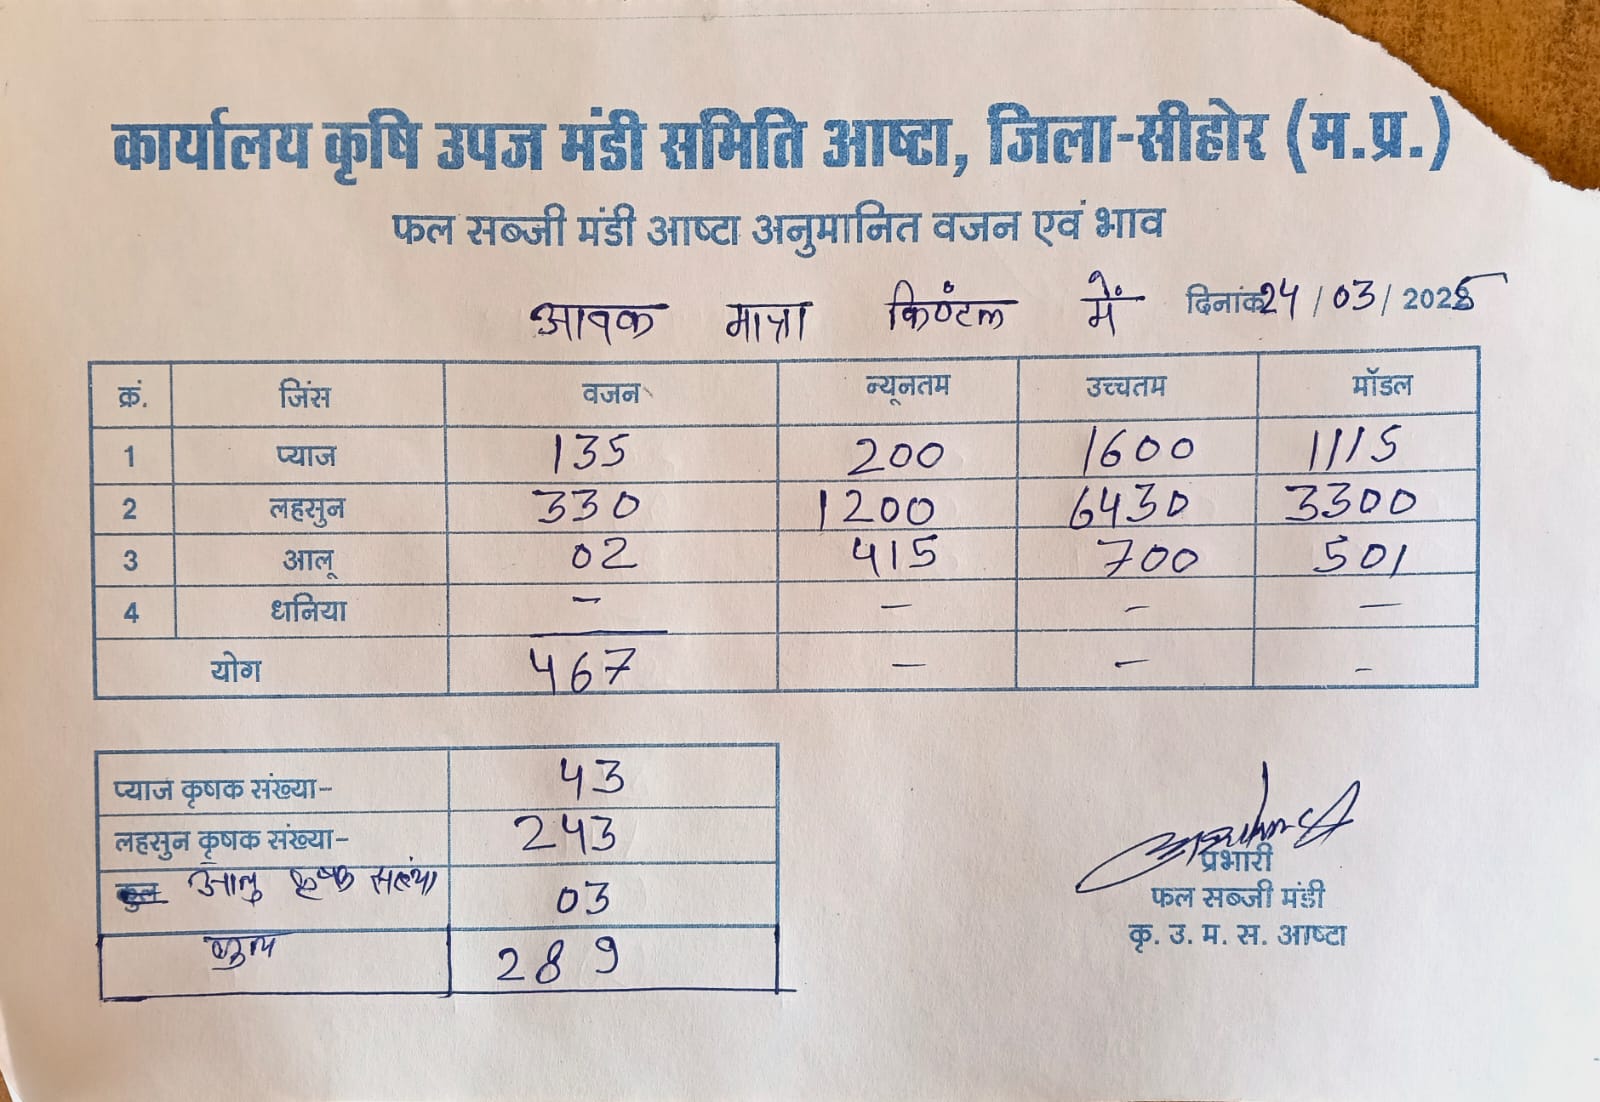 कार्यालय कृषि उपज मंडी समिति आष्टा, जिला-सीहोर (म.प्र.)
फल सब्जी मंडी आष्टा अनुमानित वजन एवं भाव
आवक मात्रा किण्टल में दिनांक 24/03/2026
क्रं. जिंस वजन न्यूनतम उच्चतम मॉडल
1 प्याज 135 200 1600 1115
2 लहसुन 330 1200 6430 3300
3 आलू 02 415 700 501
4 धनिया - - - -
योग 467 - - -
प्याज कृषक संख्या- 43
लहसुन कृषक संख्या- 243
आलु कृषक संख्या 03
कुल 289
प्रभारी
फल सब्जी मंडी
कृ. उ. म. स. आष्टा